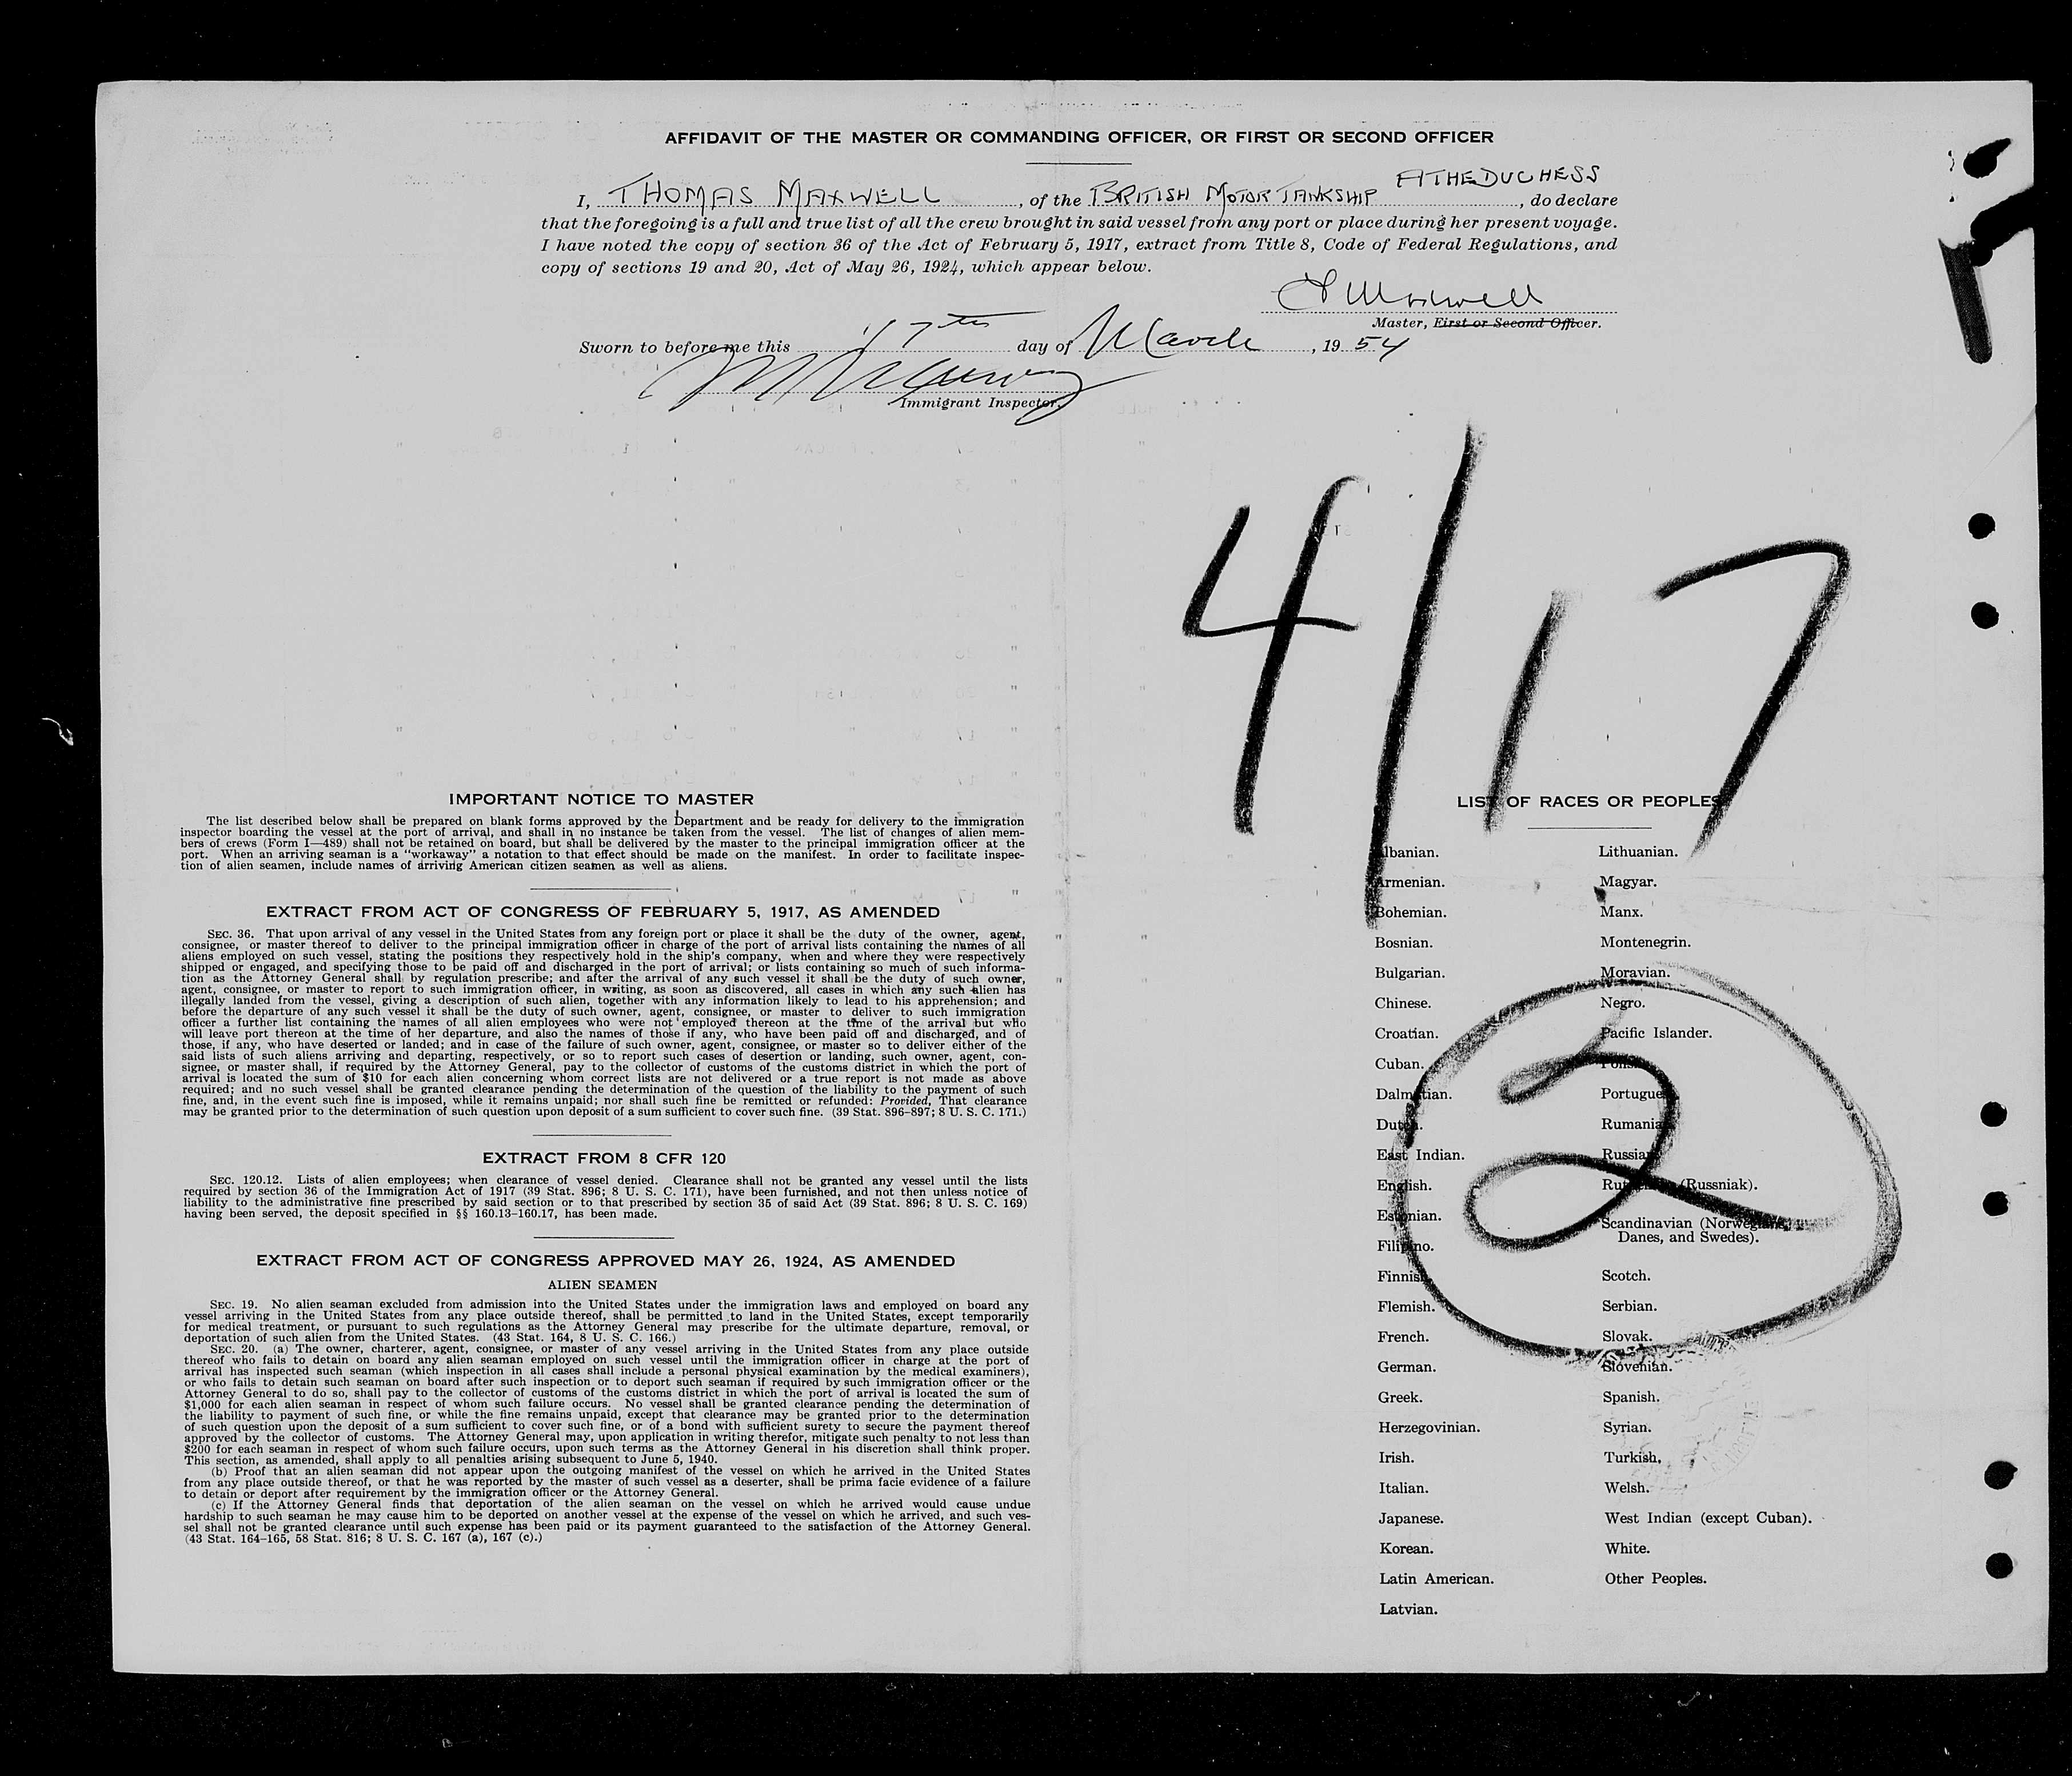 AFFIDAVIT OF THE MASTER OR COMMANDING OFFICER, OR FIRST OR SECOND OFFICER
I, THOMAS MAXWELL, of the BRITISH MOTOR TANKSHIP ATHEDUCHESS, do declare
that the foregoing is a full and true list of all the crew brought in said vessel from any port or place during her present voyage.
I have noted the copy of section 36 of the Act of February 5, 1917, extract from Title 8, Code of Federal Regulations, and
copy of sections 19 and 20, Act of May 26, 1924, which appear below.
T Maxwell
Master, First or Second Officer.
Sworn to before me this 17th day of March, 1954
Immigrant Inspector.
4/17
IMPORTANT NOTICE TO MASTER
The list described below shall be prepared on blank forms approved by the Department and be ready for delivery to the immigration
inspector boarding the vessel at the port of arrival, and shall in no instance be taken from the vessel. The list of changes of alien mem-
bers of crews (Form I—489) shall not be retained on board, but shall be delivered by the master to the principal immigration officer at the
port. When an arriving seaman is a "workaway" a notation to that effect should be made on the manifest. In order to facilitate inspec-
tion of alien seamen, include names of arriving American citizen seamen as well as aliens.
EXTRACT FROM ACT OF CONGRESS OF FEBRUARY 5, 1917, AS AMENDED
SEC. 36. That upon arrival of any vessel in the United States from any foreign port or place it shall be the duty of the owner, agent,
consignee, or master thereof to deliver to the principal immigration officer in charge of the port of arrival lists containing the names of all
aliens employed on such vessel, stating the positions they respectively hold in the ship's company, when and where they were respectively
shipped or engaged, and specifying those to be paid off and discharged in the port of arrival; or lists containing so much of such informa-
tion as the Attorney General shall by regulation prescribe; and after the arrival of any such vessel it shall be the duty of such owner,
agent, consignee, or master to report to such immigration officer, in writing, as soon as discovered, all cases in which any such alien has
illegally landed from the vessel, giving a description of such alien, together with any information likely to lead to his apprehension; and
before the departure of any such vessel it shall be the duty of such owner, agent, consignee, or master to deliver to such immigration
officer a further list containing the names of all alien employees who were not employed thereon at the time of the arrival but who
will leave port thereon at the time of her departure, and also the names of those if any, who have been paid off and discharged, and of
those, if any, who have deserted or landed; and in case of the failure of such owner, agent, consignee, or master so to deliver either of the
said lists of such aliens arriving and departing, respectively, or so to report such cases of desertion or landing, such owner, agent, con-
signee, or master shall, if required by the Attorney General, pay to the collector of customs of the customs district in which the port of
arrival is located the sum of $10 for each alien concerning whom correct lists are not delivered or a true report is not made as above
required: and no such vessel shall be granted clearance pending the determination of the question of the liability to the payment of such
fine, and, in the event such fine is imposed, while it remains unpaid; nor shall such fine be remitted or refunded: Provided, That clearance
may be granted prior to the determination of such question upon deposit of a sum sufficient to cover such fine. (39 Stat. 896–897; 8 U. S. C. 171.)
EXTRACT FROM 8 CFR 120
SEC. 120.12. Lists of alien employees; when clearance of vessel denied. Clearance shall not be granted any vessel until the lists
required by section 36 of the Immigration Act of 1917 (39 Stat. 896; 8 U. S. C. 171), have been furnished, and not then unless notice of
liability to the administrative fine prescribed by said section or to that prescribed by section 35 of said Act (39 Stat. 896; 8 U. S. C. 169)
having been served, the deposit specified in §§ 160.13–160.17, has been made.
EXTRACT FROM ACT OF CONGRESS APPROVED MAY 26, 1924, AS AMENDED
ALIEN SEAMEN
SEC. 19. No alien seaman excluded from admission into the United States under the immigration laws and employed on board any
vessel arriving in the United States from any place outside thereof, shall be permitted to land in the United States, except temporarily
for medical treatment, or pursuant to such regulations as the Attorney General may prescribe for the ultimate departure, removal, or
deportation of such alien from the United States. (43 Stat. 164, 8 U. S. C. 166.)
SEC. 20. (a) The owner, charterer, agent, consignee, or master of any vessel arriving in the United States from any place outside
thereof who fails to detain on board any alien seaman employed on such vessel until the immigration officer in charge at the port of
arrival has inspected such seaman (which inspection in all cases shall include a personal physical examination by the medical examiners),
or who fails to detain such seaman on board after such inspection or to deport such seaman if required by such immigration officer or the
Attorney General to do so, shall pay to the collector of customs of the customs district in which the port of arrival is located the sum of
$1,000 for each alien seaman in respect of whom such failure occurs. No vessel shall be granted clearance pending the determination of
the liability to payment of such fine, or while the fine remains unpaid, except that clearance may be granted prior to the determination
of such question upon the deposit of a sum sufficient to cover such fine, or of a bond with sufficient surety to secure the payment thereof
approved by the collector of customs. The Attorney General may, upon application in writing therefor, mitigate such penalty to not less than
$200 for each seaman in respect of whom such failure occurs, upon such terms as the Attorney General in his discretion shall think proper.
This section, as amended, shall apply to all penalties arising subsequent to June 5, 1940.
(b) Proof that an alien seaman did not appear upon the outgoing manifest of the vessel on which he arrived in the United States
from any place outside thereof, or that he was reported by the master of such vessel as a deserter, shall be prima facie evidence of a failure
to detain or deport after requirement by the immigration officer or the Attorney General.
(c) If the Attorney General finds that deportation of the alien seaman on the vessel on which he arrived would cause undue
hardship to such seaman he may cause him to be deported on another vessel at the expense of the vessel on which he arrived, and such ves-
sel shall not be granted clearance until such expense has been paid or its payment guaranteed to the satisfaction of the Attorney General.
(43 Stat. 164–165, 58 Stat. 816; 8 U. S. C. 167 (a), 167 (c).)
LIST OF RACES OR PEOPLES
Albanian.
Armenian.
Bohemian.
Bosnian.
Bulgarian.
Chinese.
Croatian.
Cuban.
Dalmatian.
Dutch.
East Indian.
English.
Estonian.
Filipino.
Finnish.
Flemish.
French.
German.
Greek.
Herzegovinian.
Irish.
Italian.
Japanese.
Korean.
Latin American.
Latvian.
Lithuanian.
Magyar.
Manx.
Montenegrin.
Moravian.
Negro.
Pacific Islander.
Polish.
Portuguese.
Rumanian.
Russian.
Ruthenian (Russniak).
Scandinavian (Norwegians,
Danes, and Swedes).
Scotch.
Serbian.
Slovak.
Slovenian.
Spanish.
Syrian.
Turkish.
Welsh.
West Indian (except Cuban).
White.
Other Peoples.
2